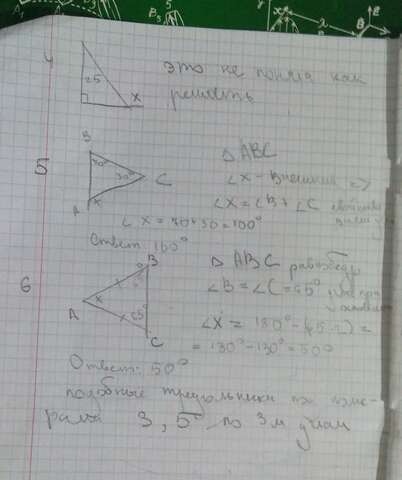 4
25
x
это не поняла как
решить
5
B
70°
30°
C
A
x
Δ ABC
∠x - внешний =>
∠x = ∠B + ∠C
∠x = 70+30=100°
Ответ 100°
6
B
A
x
65°
C
Δ ABC равнобедр
∠B = ∠C = 65°
∠x = 180° - (65·2) =
= 180° - 130° = 50°
Ответ: 50°
подобные треугольники
3, 5 по 3м углам